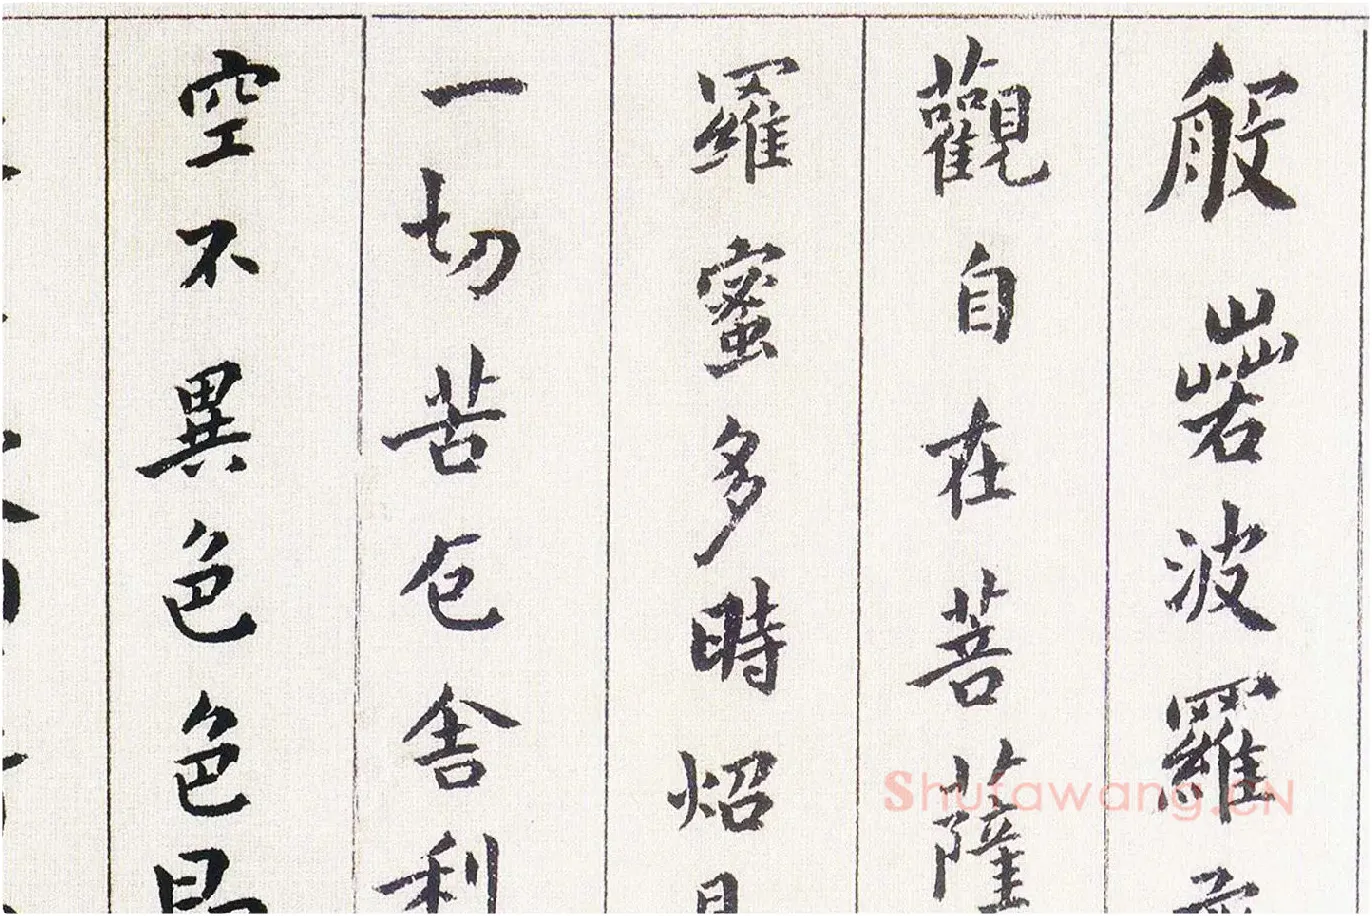 般若波羅
觀自在菩薩
羅蜜多時炤
一切苦厄舍利
空不異色色
Shufawang.CN